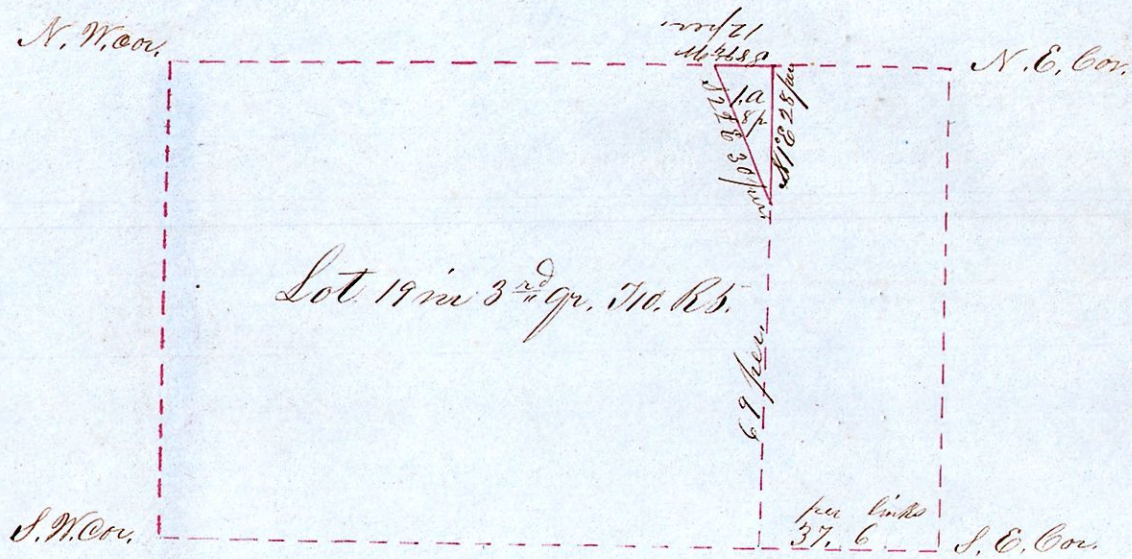 N. W. cor.
12 per.
N. E. Cor.
1. a
8 p
S 22 E 30 per
N 1° E 28 per
Lot 19 in 3rd qr. T10. R5.
69 per.
per links
37. 6
S. W. Cor.
S. E. Cor.